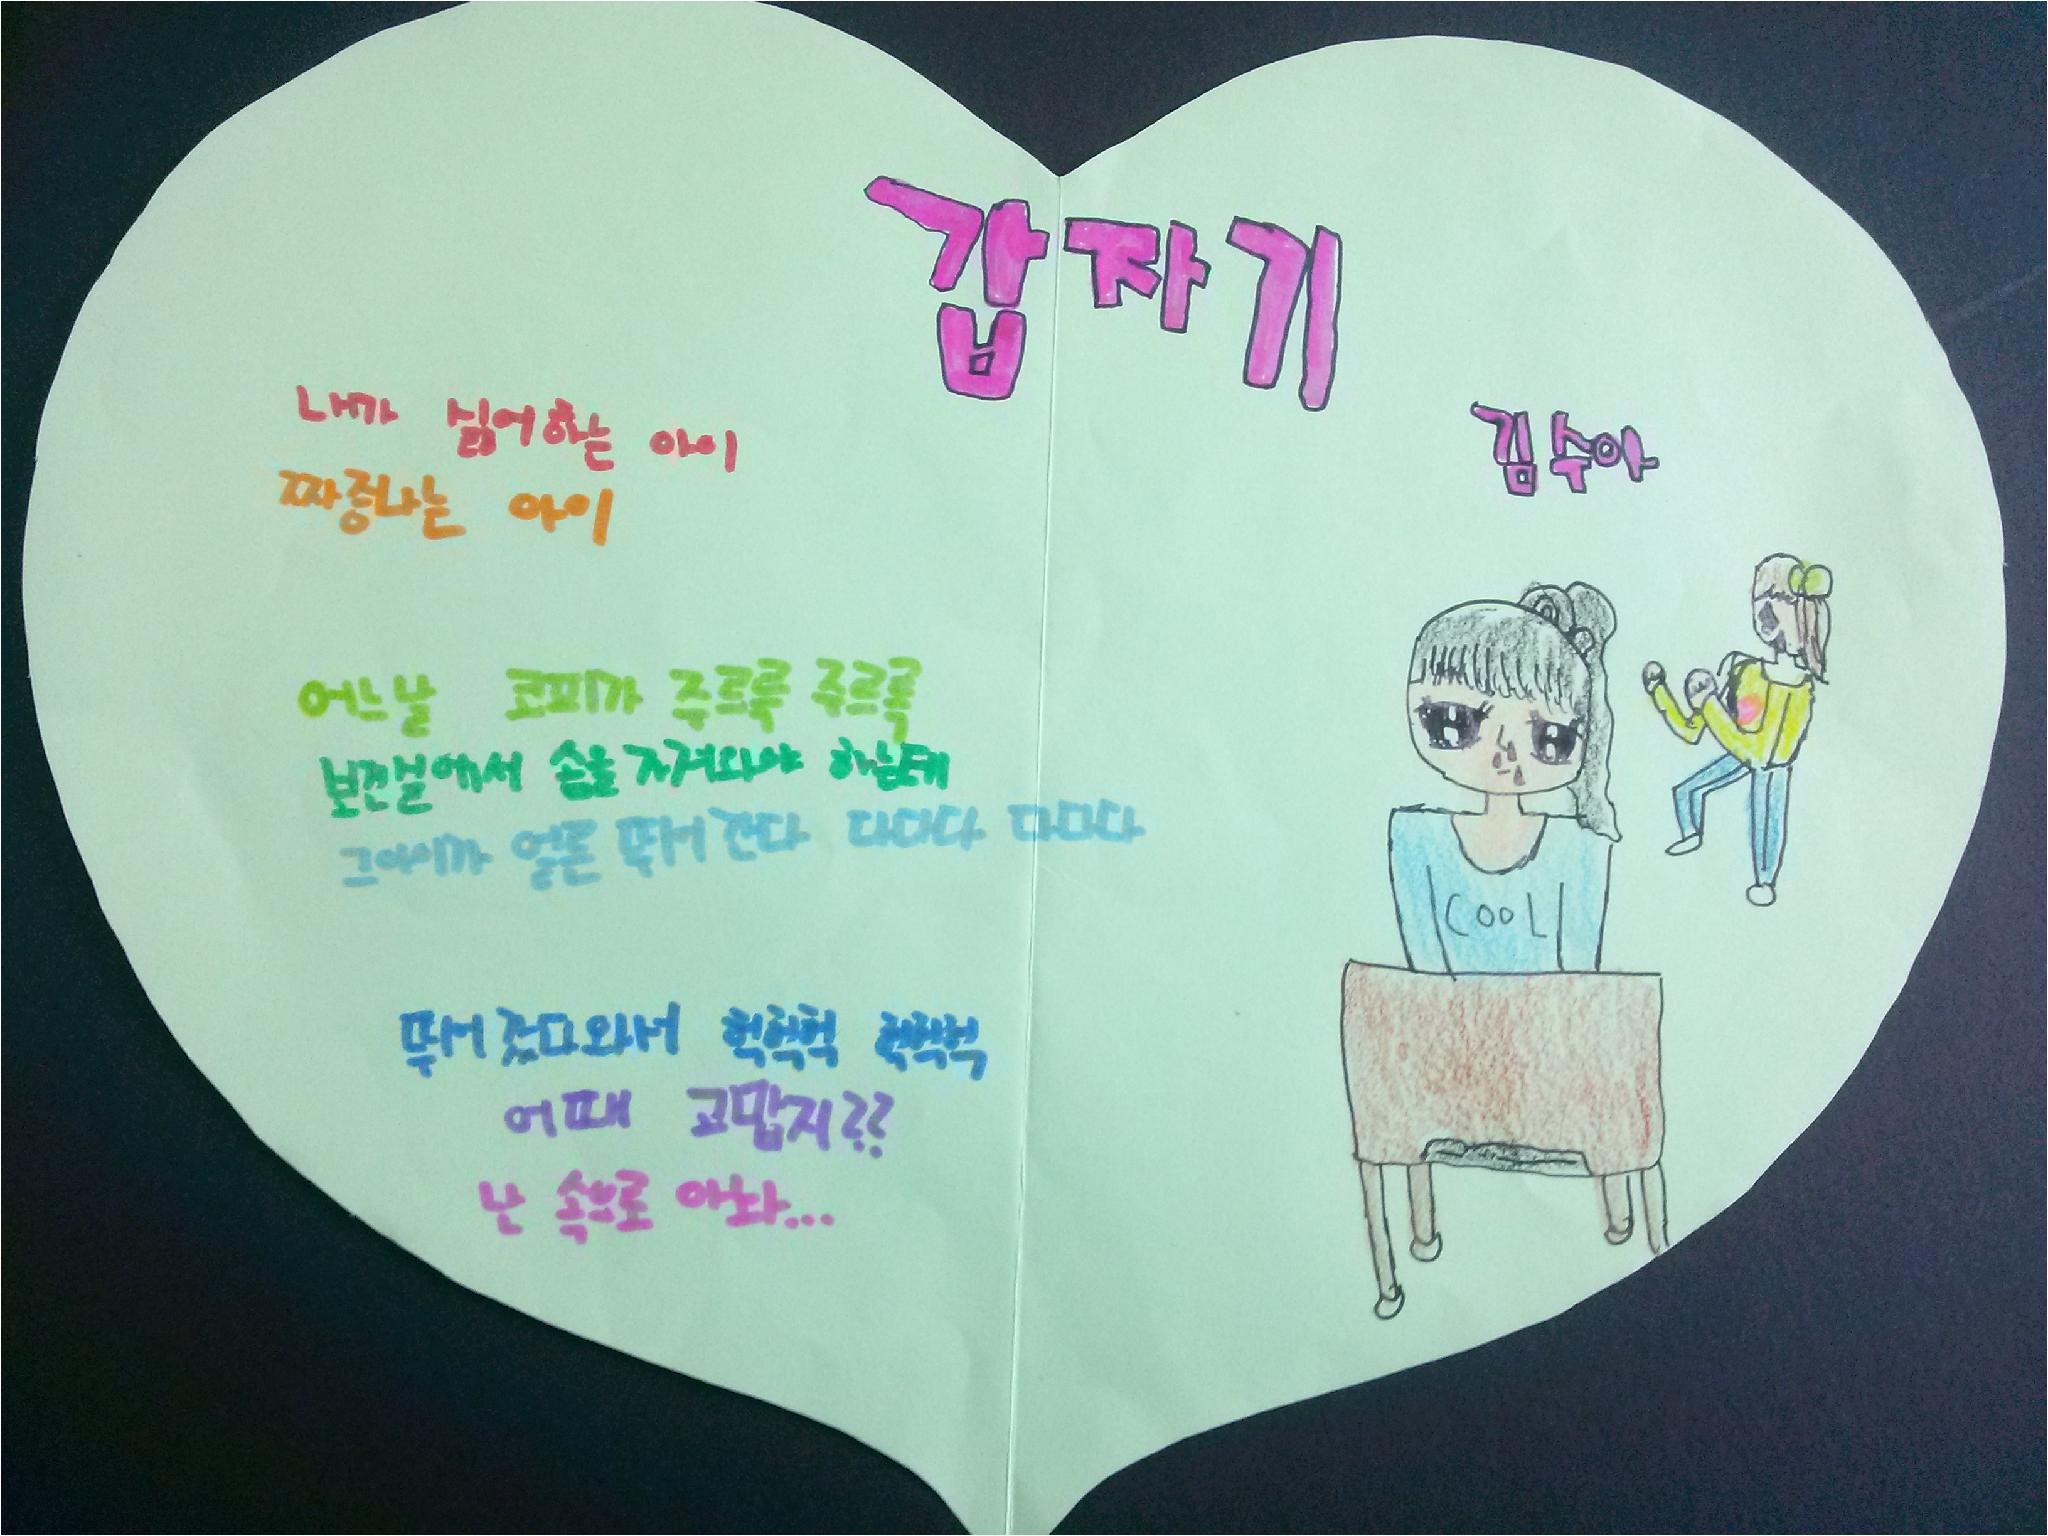 갑자기
김수아
내가 싫어하는 아이
짜증나는 아이
어느날 코피가 주르륵 주르륵
보건실에서 솜을 가져와야 하는데
그아이가 얼른 뛰어 간다 다다다 다다다
뛰어 갔다와서 헉헉헉 헉헉헉
어때 고맙지??
난 속으로 아놔...
COOL